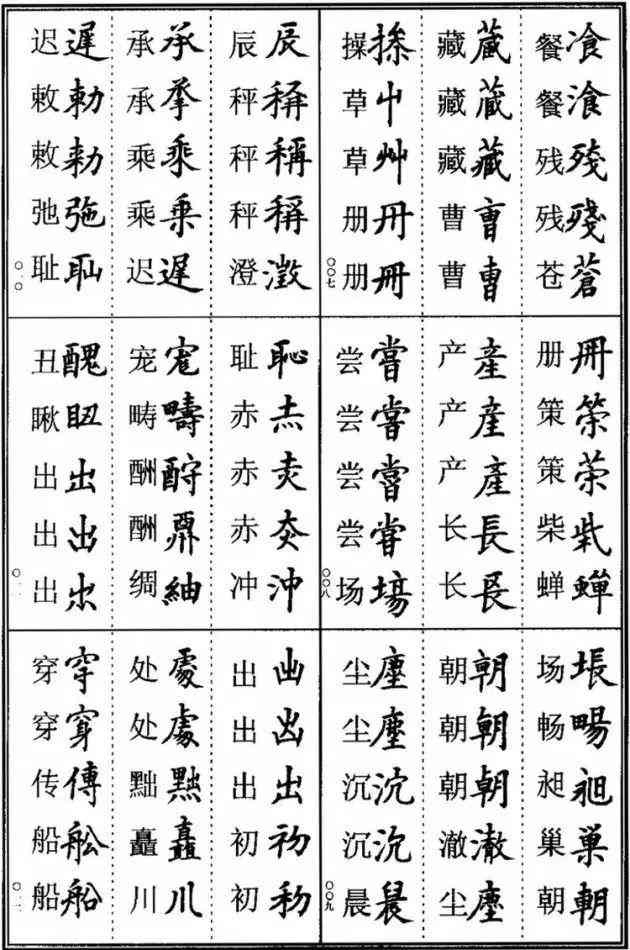 餐飡 餐湌 残殘 残殘 苍蒼
藏蔵 藏蔵 藏藏 曹曺 曹曹
操 草屮 草艸 册冊 册冊
〇〇七
册冊 策 策 柴 蝉蟬
产産 产産 产產 长長 长镸
尝嘗 尝嘗 尝嘗 尝甞 场塲
〇〇八
场 畅暢 昶昶 巢巣 朝朝
朝朝 朝朝 朝朝 澈澈 尘塵
尘塵 尘塵 沉沉 沉沉 晨晨
〇〇九
辰辰 秤稱 秤稱 秤稱 澄澂
承承 承 乘乗 乘乗 迟遲
迟遲 敕勅 敕勑 弛 耻耻
〇一〇
耻恥 赤赤 赤 赤 冲沖
宠 畴疇 酬酧 酬 绸紬
丑醜 瞅 出出 出出 出
〇一一
出出 出 出出 初初 初初
处處 处處 黜 矗矗 川川
穿穿 穿穿 传傳 船舩 船船
〇一二